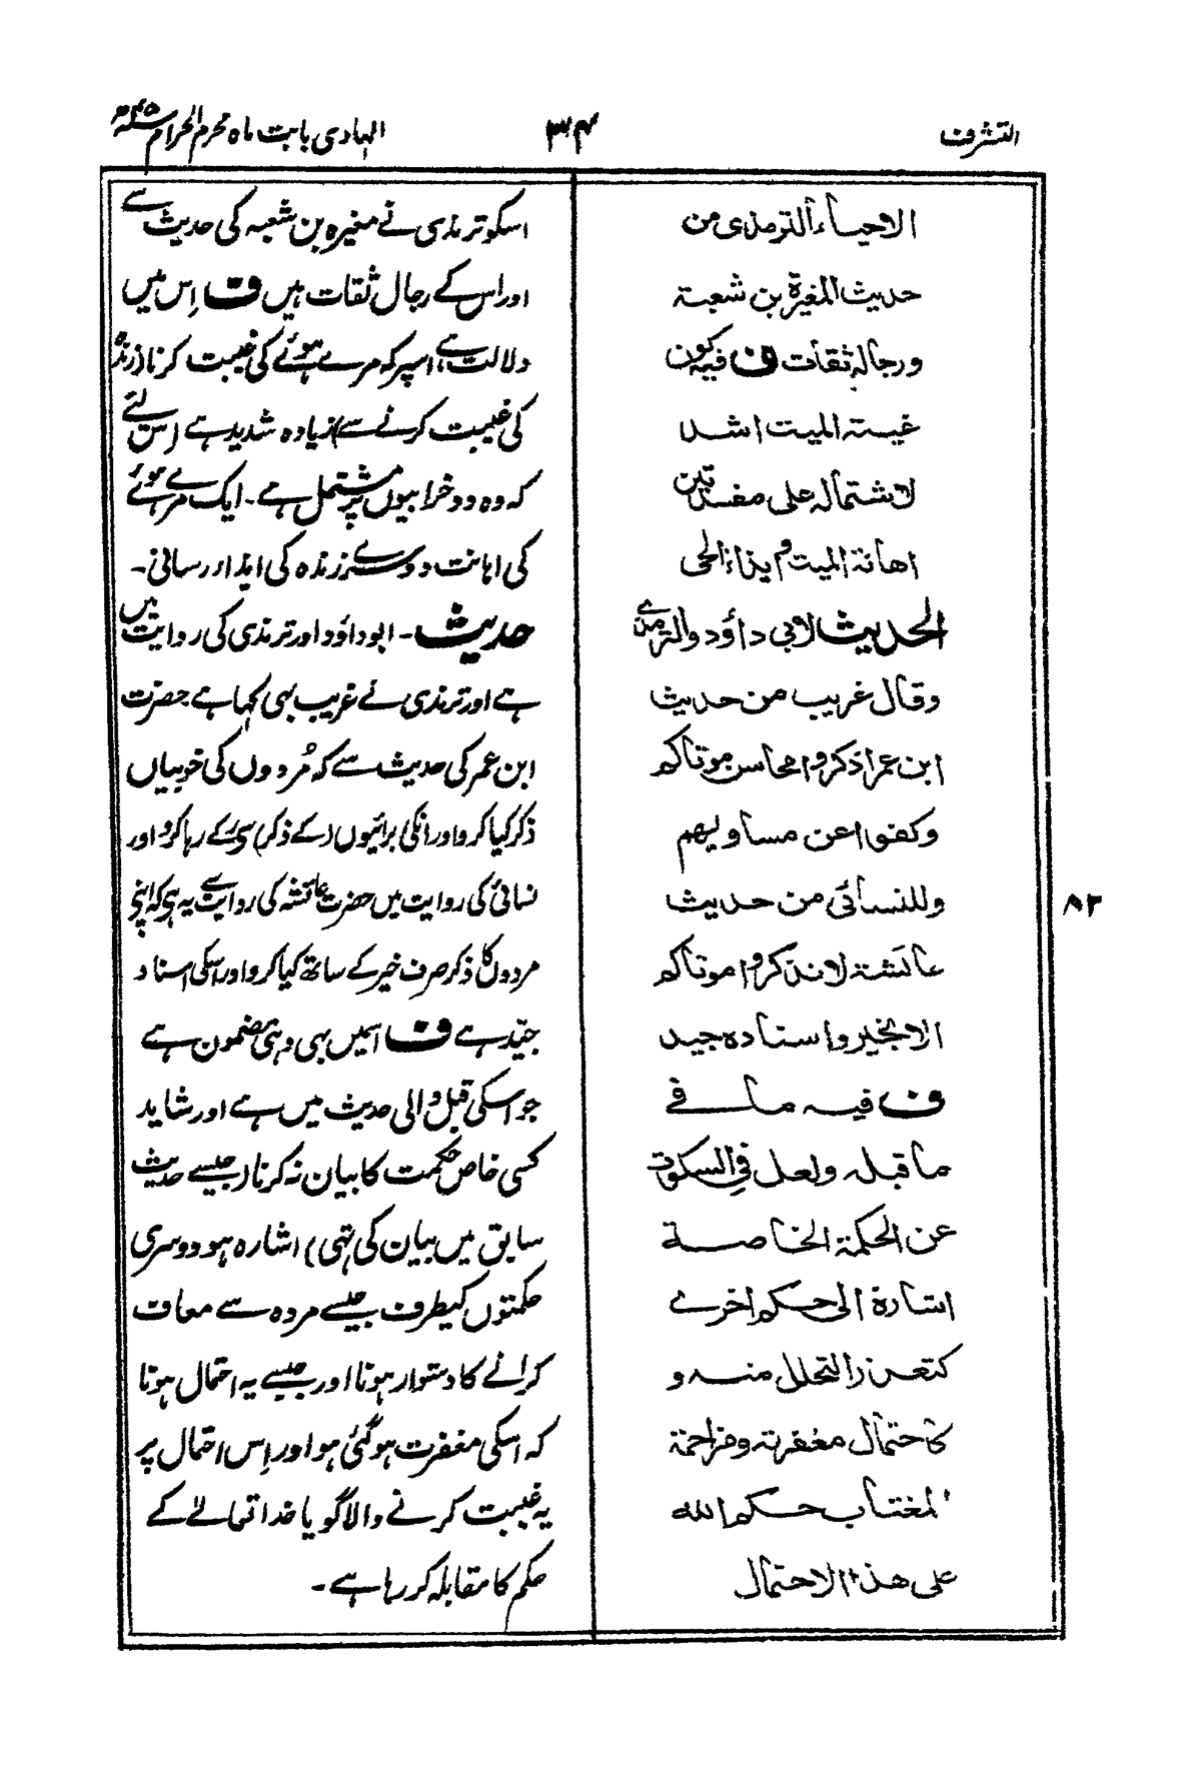 التشرف
۳۴
الہادی بابت ماہ محرم الحرام ۴۵ھ
الاحیاء الترمذی من
حدیث المغیرۃ بن شعبۃ
ورجالہ ثقات ف فیہ کون
غیبتہ المیت اشد
لاشتمالہ علی مفسدتین
اھانۃ المیت و ایذاء الحی
الحدیث لابی داؤد والترمذے
وقال غریب من حدیث
ابن عمر اذکروا محاسن موتاکم
وکفوا عن مساویھم
وللنسائی من حدیث
عائشۃ لا تذکروا موتاکم
الا بخیر و اسنادہ جید
ف فیہ ما فے
ما قبلہ ولعل فی السکوت
عن الحکمۃ الخاصۃ
اشارۃ الی حکم اخرے
کتعذر التحلل منہ و
کاحتمال مغفرتہ ومزاحمۃ
المغتاب حکم اللہ
علی ھذا الاحتمال
۸۳
اسکو ترمذی نے مغیرہ بن شعبہ کی حدیث سے
اور اس کے رجال ثقات ہیں ف اِس میں
دلالت ہے اسپر کہ مرے ہوئے کی غیبت کرنا (زندہ
کی غیبت کرنے سے) زیادہ شدید ہے (اس لئے
کہ وہ دو خرابیوں پر مشتمل ہے۔ ایک مرے ہوئے
کی اہانت دوسرے زندہ کی ایذاء رسانی۔
حدیث۔ ابوداؤد اور ترمذی کی روایت میں
ہے اور ترمذی نے غریب بہی کہا ہے حضرت
ابن عمر کی حدیث سے کہ مُردوں کی خوبیاں
ذکر کیا کرو اور انکی برائیوں (کے ذکر) سے رکے رہا کرو اور
نسائی کی روایت میں حضرت عائشہ کی روایت سے یہ ہی کہ اپنی
مردوں کا ذکر صرف خیر کے ساتھ کیا کرو اور اسکی اسناد
جیّد ہے ف اسمیں بہی وہی مضمون ہے
جو اسکی قبل والی حدیث میں ہے اور شاید
کسی خاص حکمت کا بیان نہ کرنا (جیسے حدیث
سابق میں بیان کی تہی) اشارہ ہو دوسری
حکمتوں کیطرف جیسے مردہ سے معاف
کرانے کا دشوار ہونا اور جیسے یہ احتمال ہونا
کہ اسکی مغفرت ہو گئی ہو اور اِس احتمال پر
یہ غیبت کرنے والا گویا خدا تعالےٰ کے
حکم کا مقابلہ کر رہا ہے۔